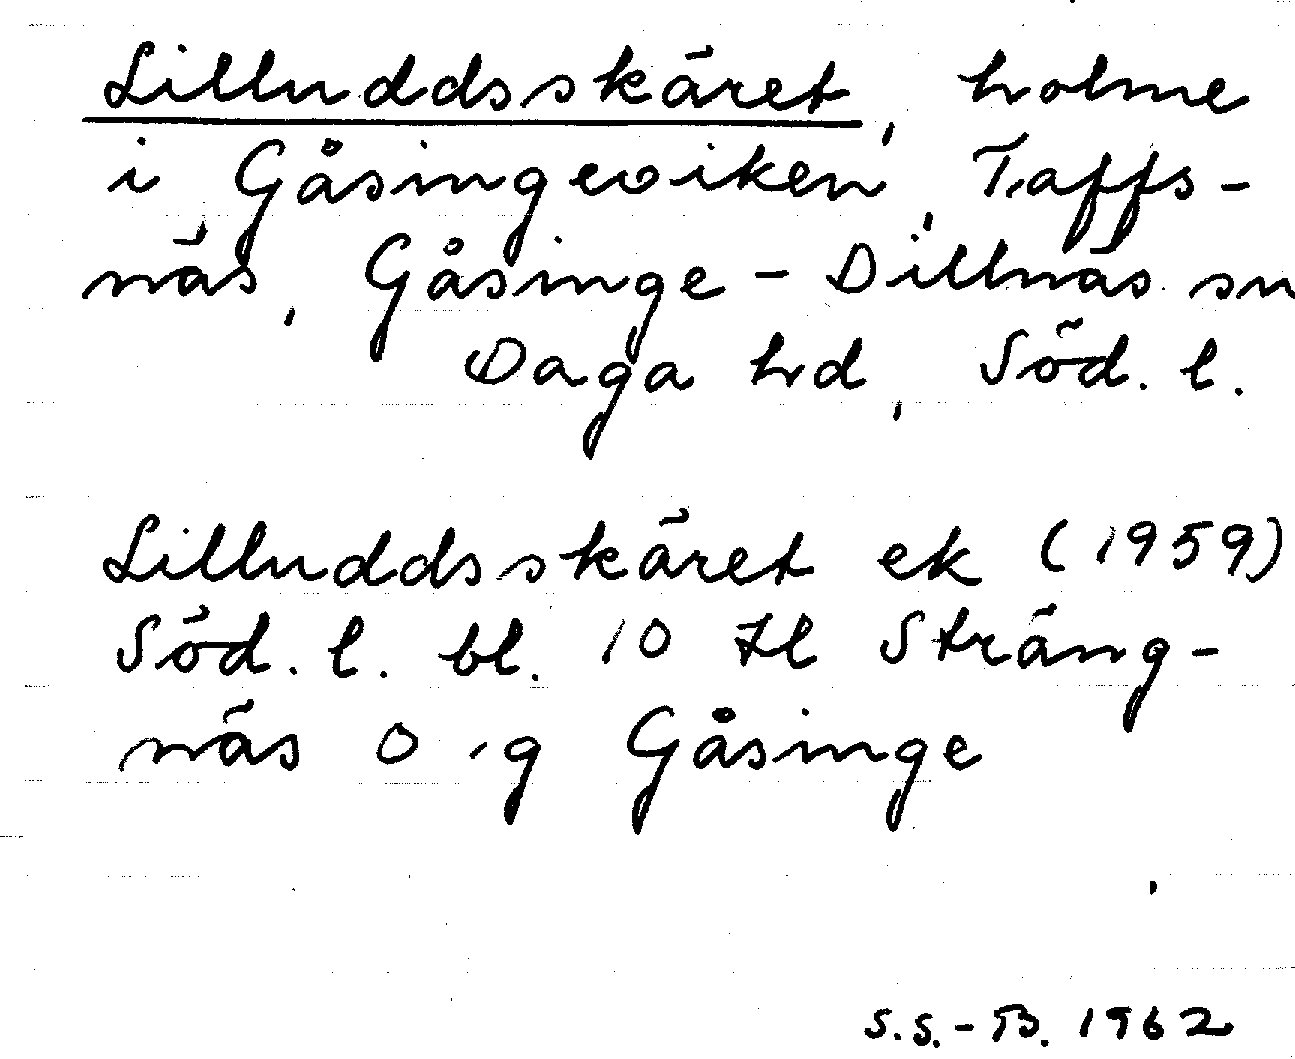 Lilluddsskäret, holme
i Gåsingeviken, Taffs-
näs, Gåsinge-Dillnäs sn
Daga hd, Söd. l.
Lilluddsskäret ek (1959)
Söd. l. bl. 10 tl Sträng-
näs 0 ig Gåsinge
S.S.-B. 1962